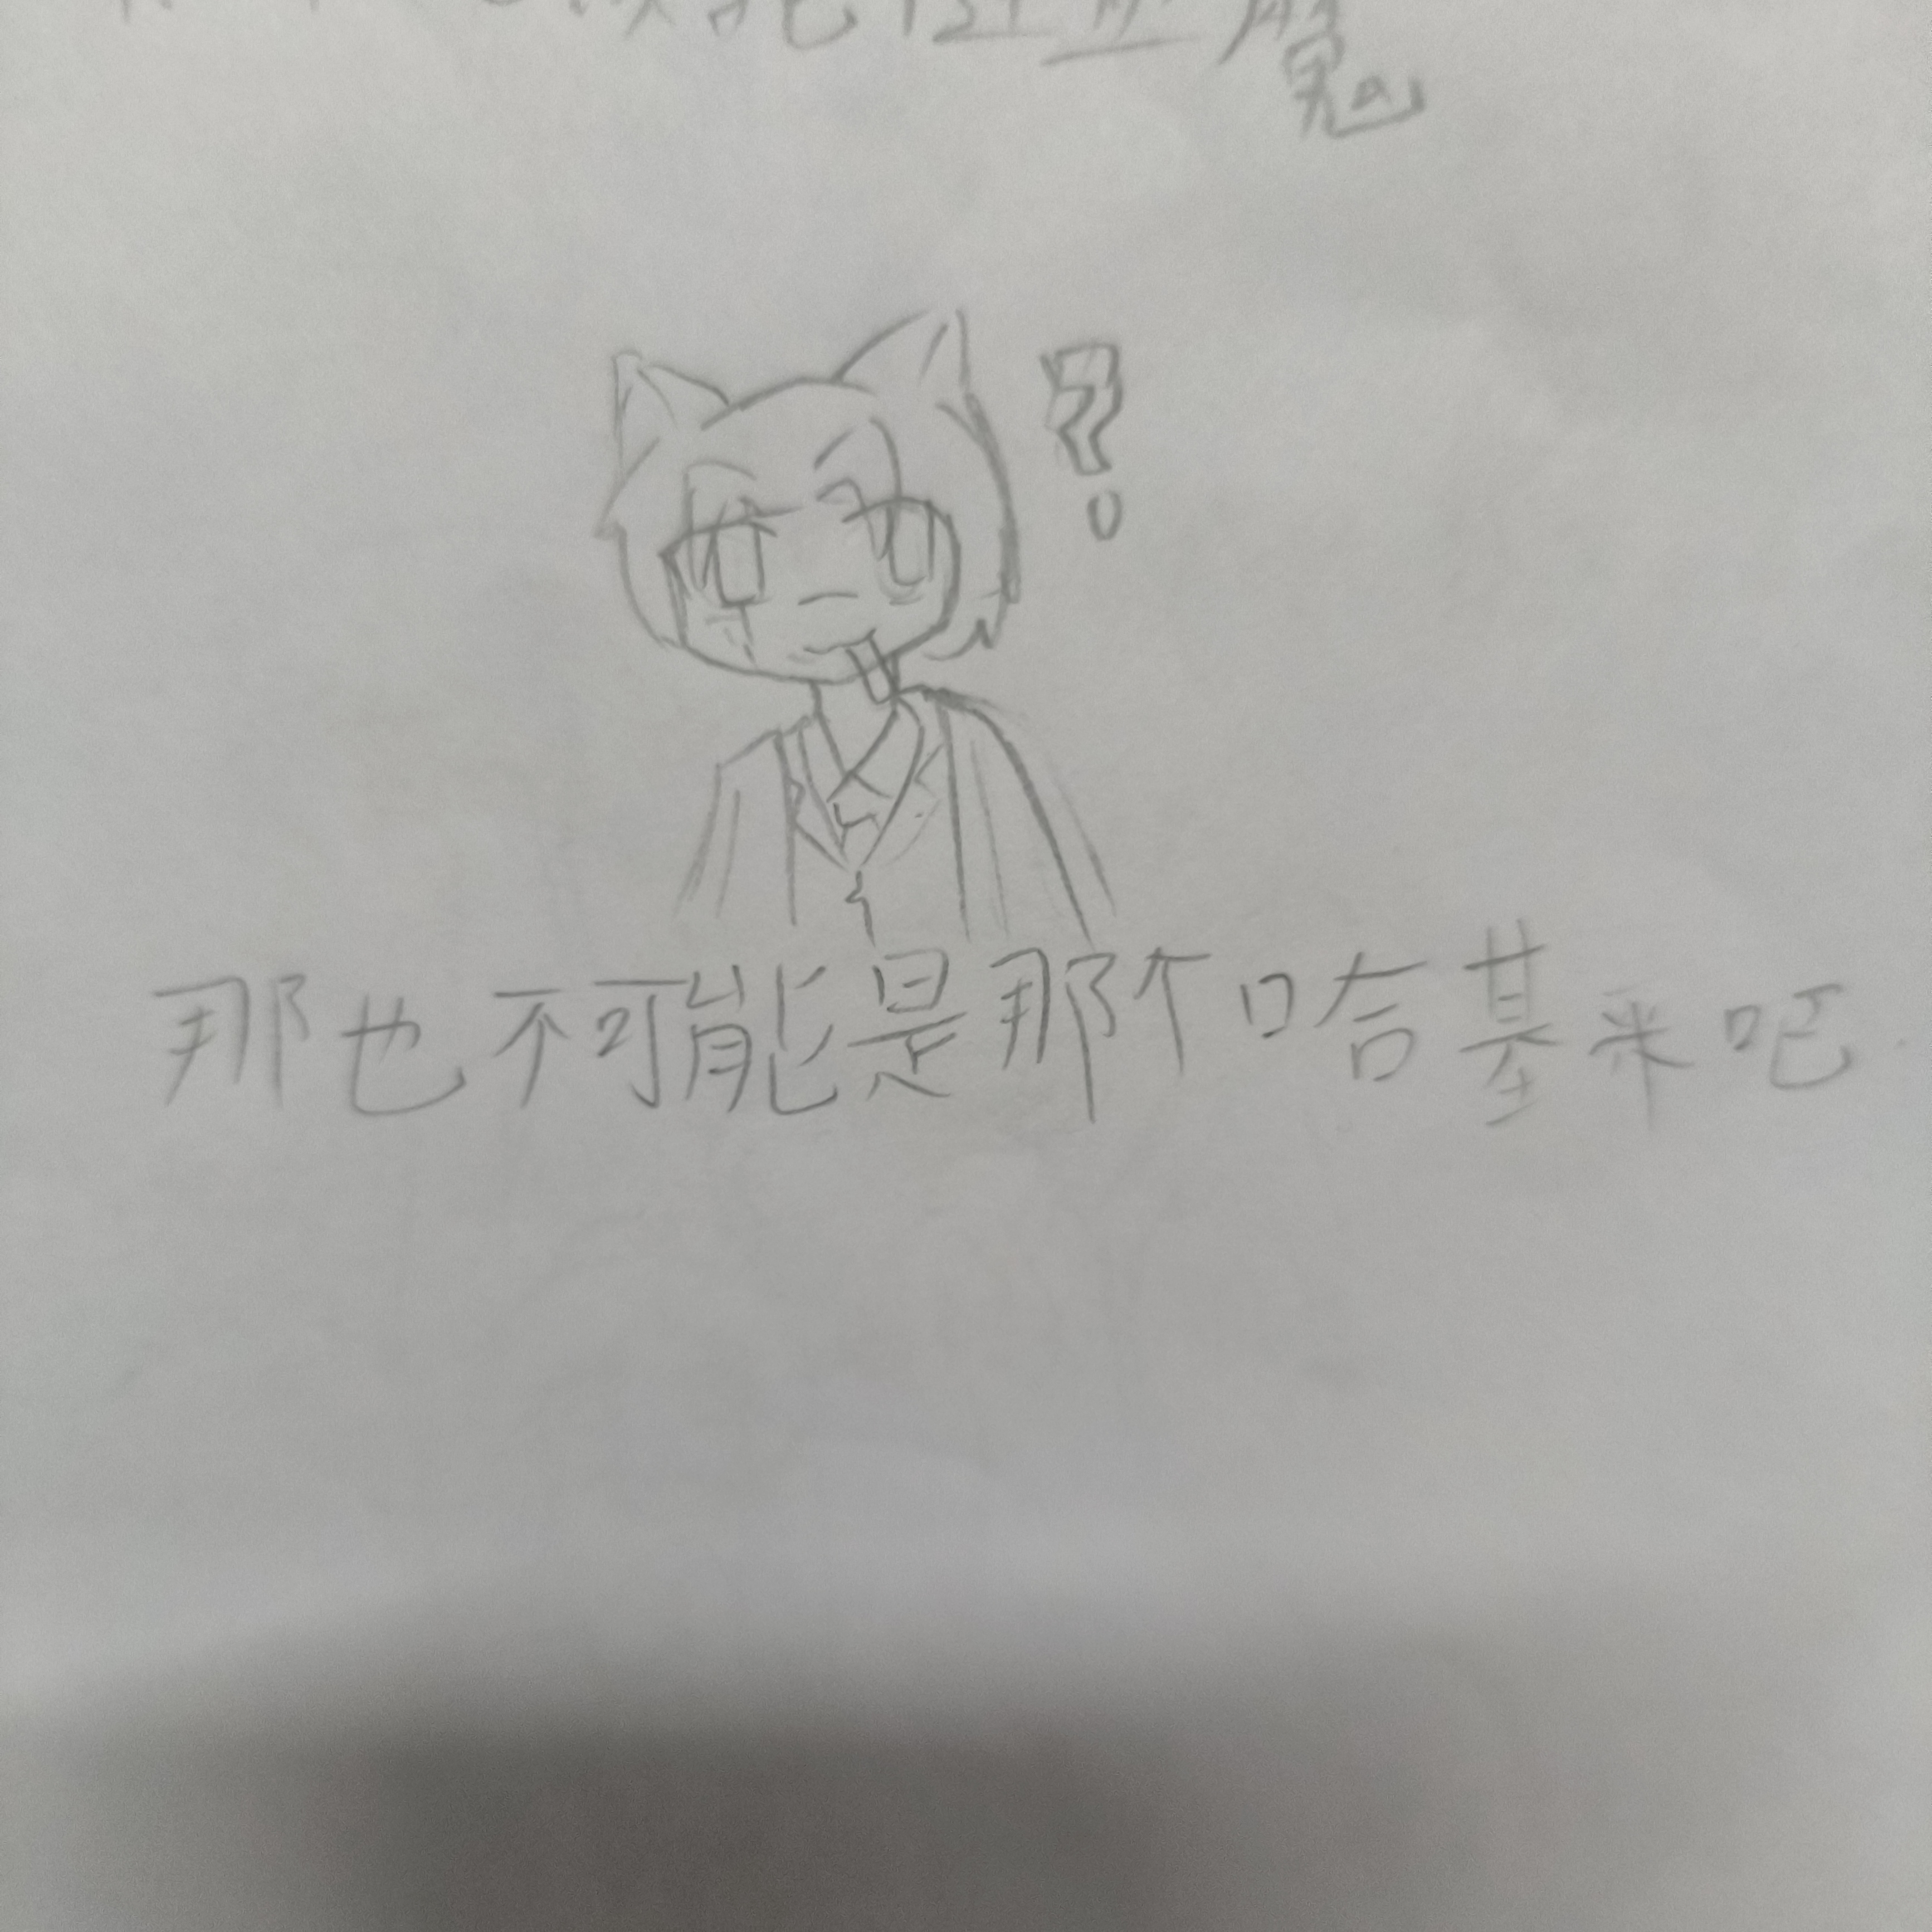 魔
?
那也不可能是那个哈基米吧